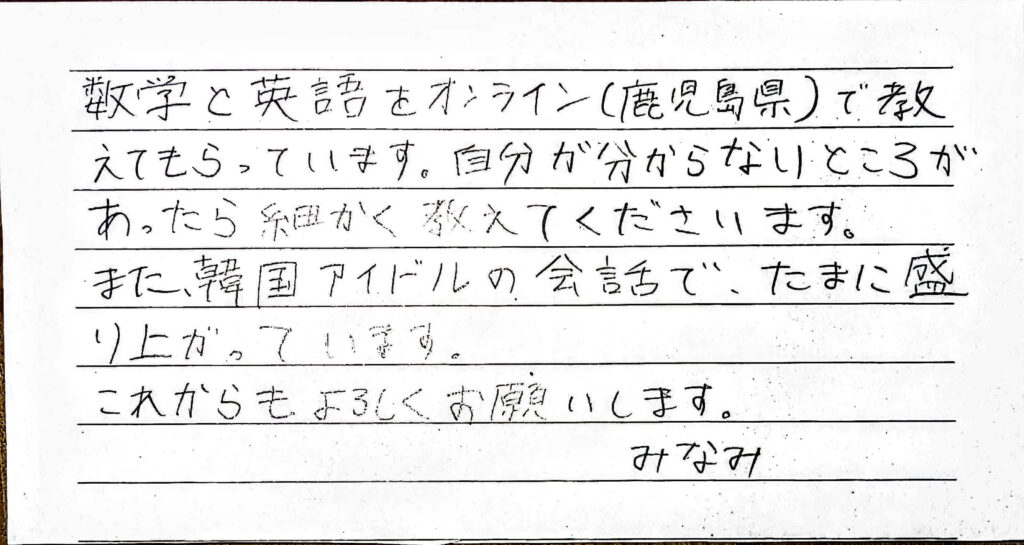 数学と英語をオンライン(鹿児島県)で教
えてもらっています。自分が分からないところが
あったら細かく教えてくださいます。
また、韓国アイドルの会話で、たまに盛
り上がっています。
これからもよろしくお願いします。
みなみ